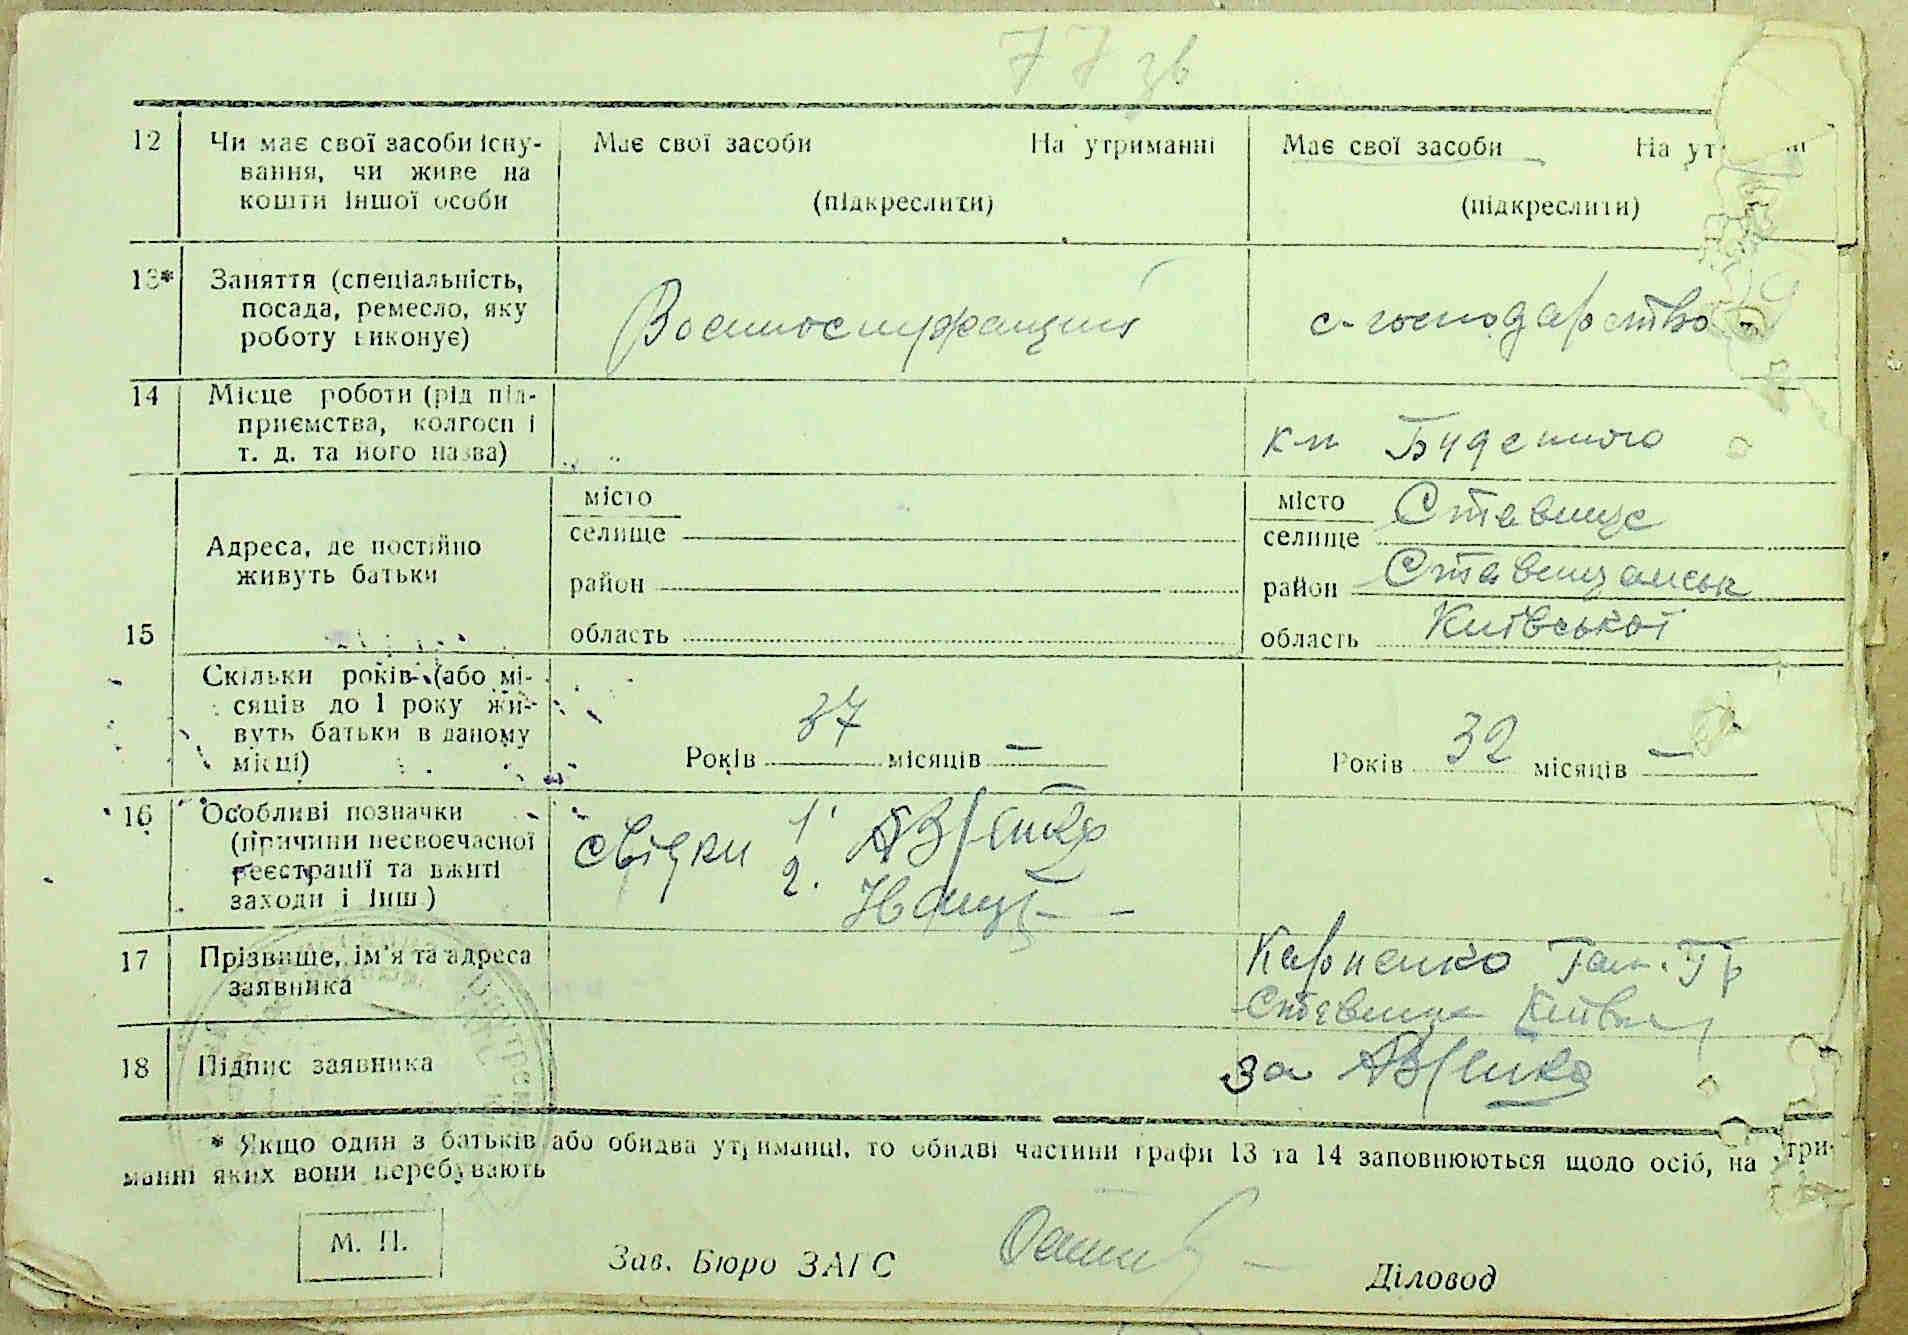 77 зв
12 Чи має свої засоби існу-
вання, чи живе на
кошти іншої особи
Має свої засоби На утриманні
(підкреслити)
Має свої засоби На ут
(підкреслити)
13* Заняття (спеціальність,
посада, ремесло, яку
роботу виконує)
с-господарство
14 Місце роботи (рід під-
приємства, колгосп і
т. д. та його назва)
кп Буденного
15
Адреса, де постійно
живуть батьки
місто
селище
район
область
місто Ставище
селище
район Ставищанськ
область Київської
Скільки років (або мі-
сяців до 1 року жи-
вуть батьки в даному
місці)
Років 37 місяців —
Років 32 місяців —
16 Особливі позначки
(причини несвоєчасної
реєстрації та вжиті
заходи і інш)
свідки 1
2.
17 Прізвище, ім'я та адреса
заявника
Карпенко Ган. Гр
Ставище
18 Підпис заявника
за
* Якщо один з батьків або обидва утриманці, то обидві частини графи 13 та 14 заповнюються щодо осіб, на утри-
манні яких вони перебувають
М. П.
Зав. Бюро ЗАГС
Діловод